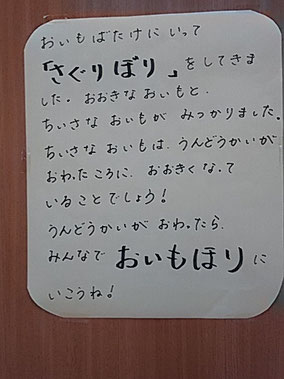 おいもばたけに いって
「さぐりぼり」をしてきま
した。おおきな おいもと、
ちいさな おいもが みつかりました。
ちいさな おいもは、うんどうかいが
おわったころに、おおきくなって
いることでしょう!
うんどうかいが おわったら、
みんなで おいもほりに
いこうね!